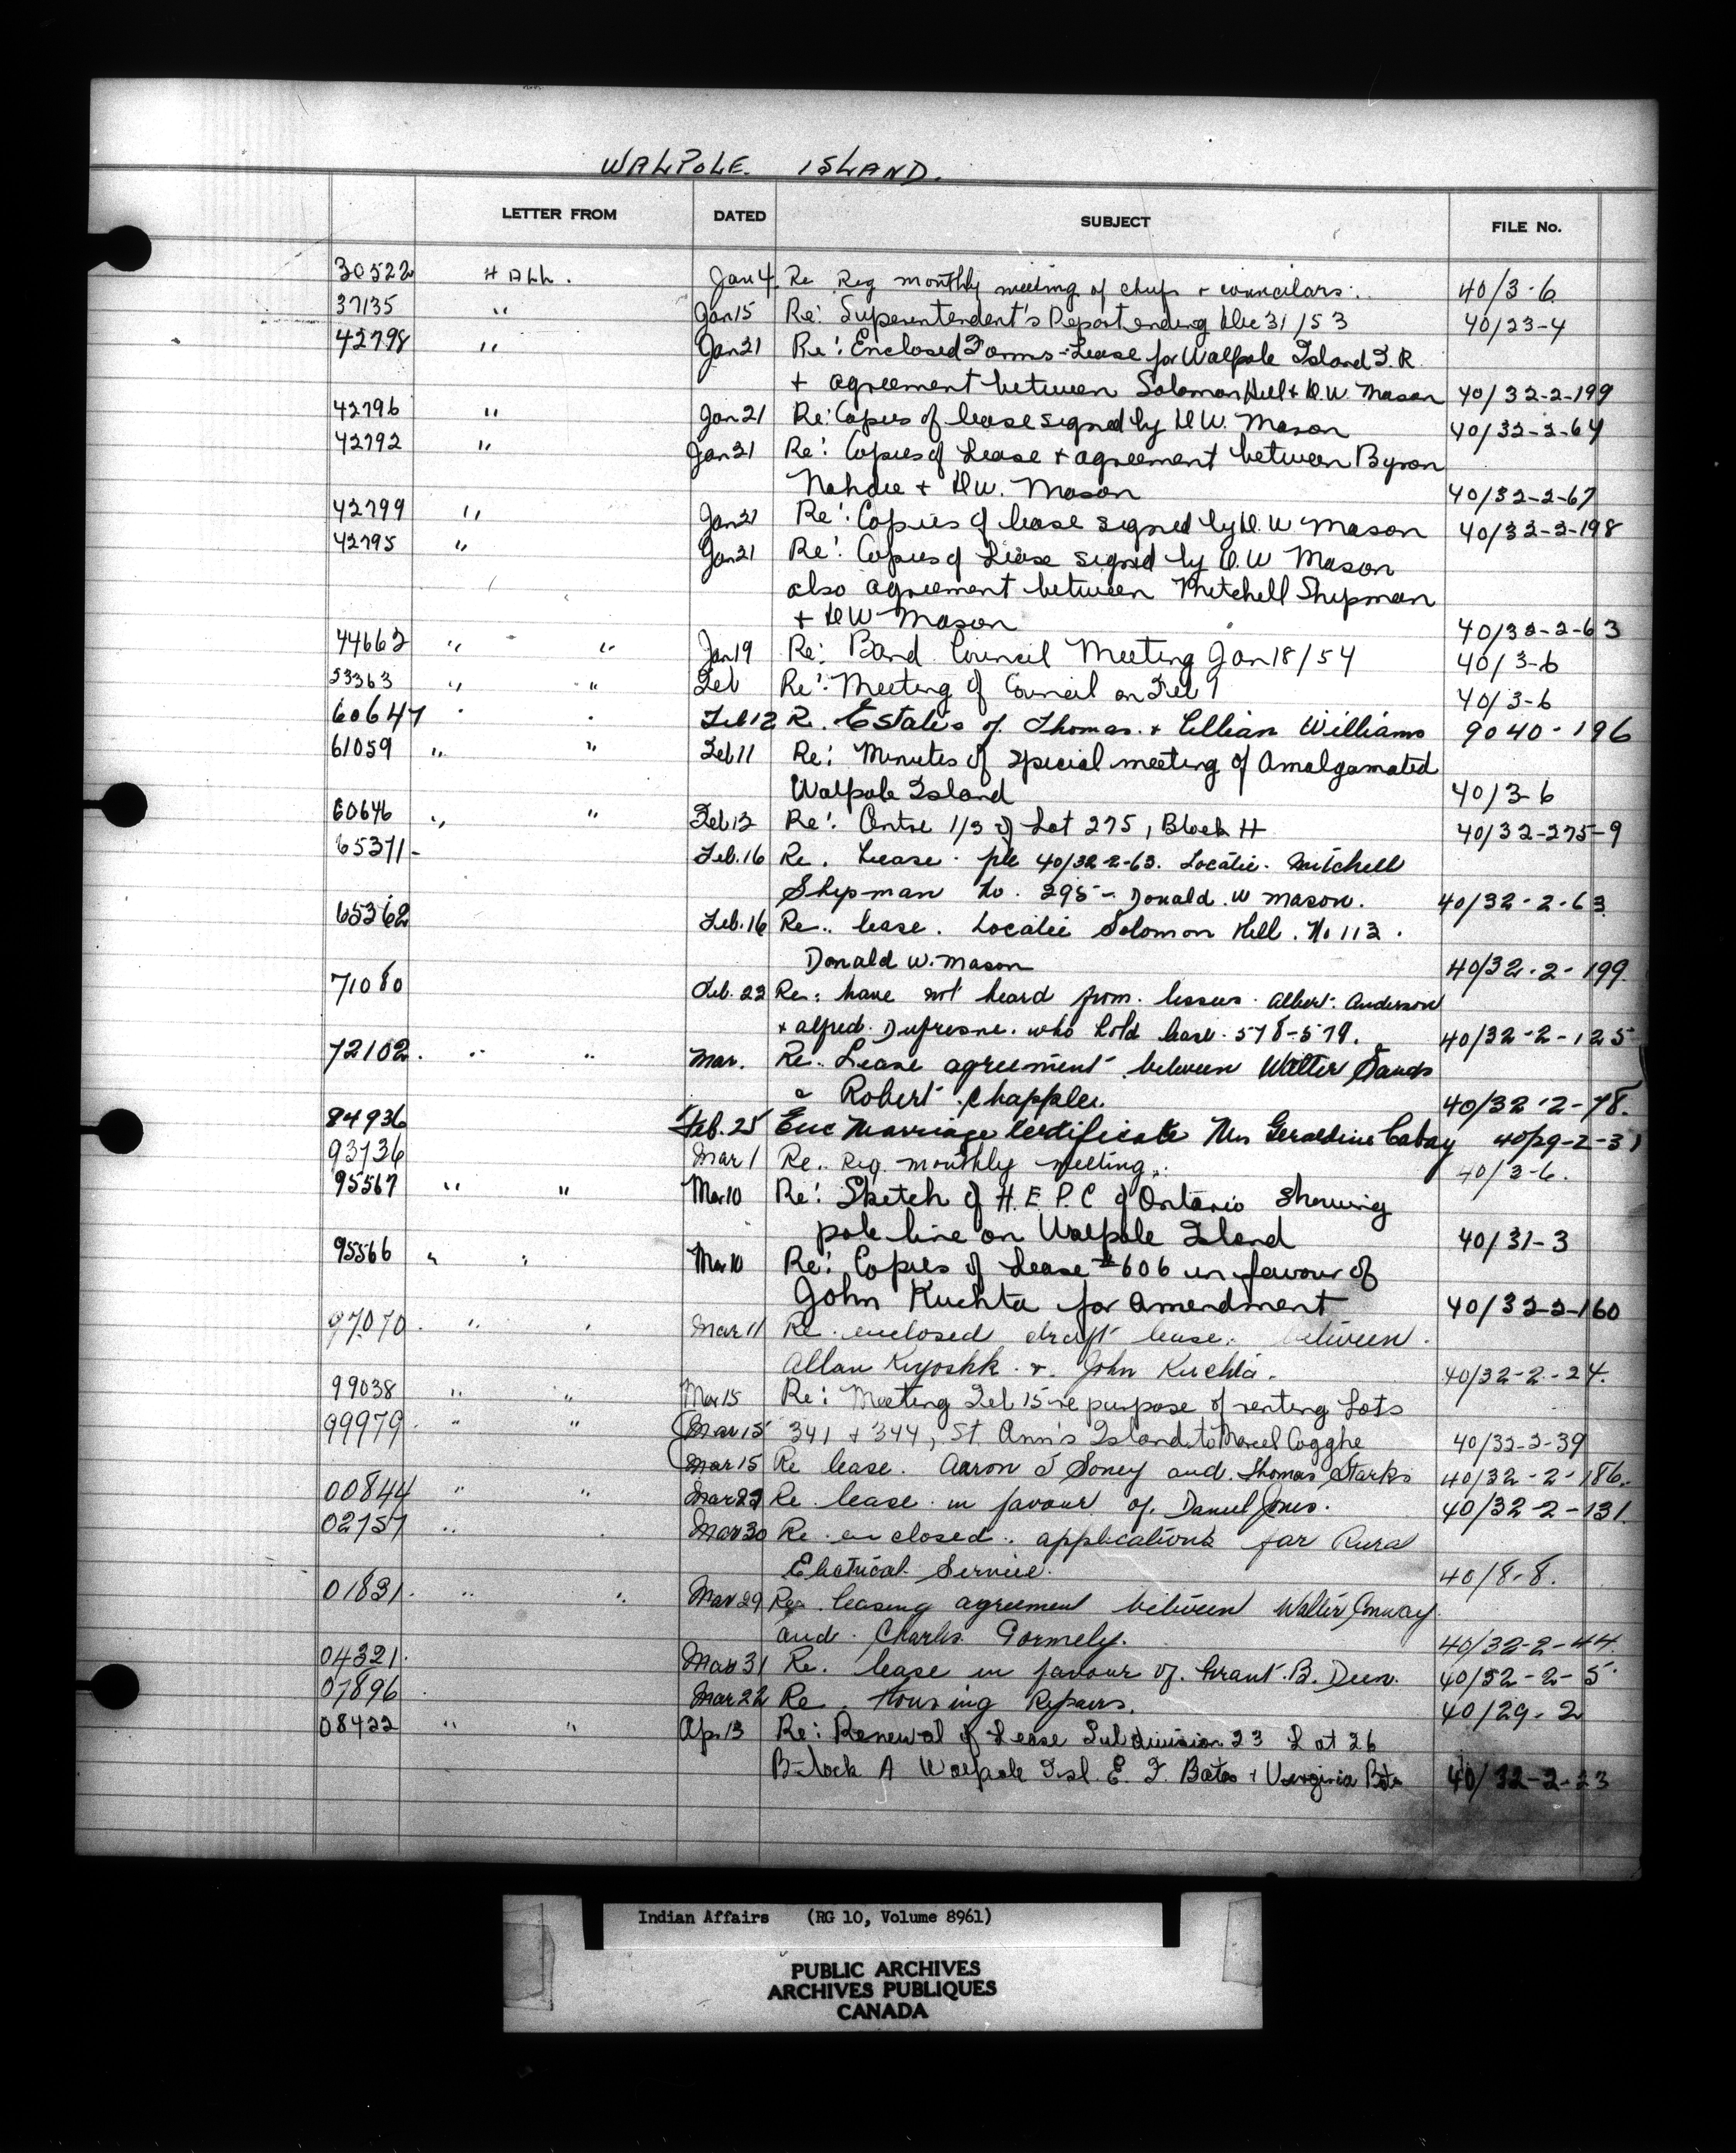 WALPOLE ISLAND.
LETTER FROM DATED SUBJECT FILE No.
30522 HALL. Jan 4. Re Reg monthly meeting of chiefs + councilars. 40/3-6
37135 " Jan 15 Re: Superentendent's Report ending Dec 31/53 40/23-4
42798 " Jan 21 Re: Enclosed Forms - Lease for Walpole Island I.R.
+ agreement between Solomon Hill + D.W. Mason 40/32-2-199
42796 " Jan 21 Re: Copies of lease signed by D W. Mason 40/32-2-64
42792 " Jan 21 Re: Copies of Lease + agreement between Byron
Nahdee + D W. Mason 40/32-2-67
42799 " Jan 21 Re: Copies of lease signed by D. W Mason 40/32-2-198
42795 " Jan 21 Re: Copies of Lease signed by D. W Mason
also agreement between Mitchell Shipman
+ D W Mason 40/32-2-63
44662 " " Jan 19 Re: Band Council Meeting Jan 18/54 40/3-6
53363 " " Feb Re: Meeting of Council on Feb 1 40/3-6
60647 " " Feb 12 Re. Estates of Thomas + Lillian Williams 9040-196
61059 " " Feb 11 Re: Minutes of special meeting of Amalgamated
Walpole Island 40/3-6
60646 " " Feb 12 Re: Centre 1/3 of Lot 275, Block H 40/32-275-9
65371- Feb. 16 Re. Lease. file 40/32-2-63. Locatie. Mitchell
Shipman No. 295 - Donald. W Mason. 40/32-2-63
65362 Feb. 16 Re.. lease. Locatie Solomon Hill. No 112.
Donald W. Mason 40/32-2-199.
71080 Feb. 22 Re: have not heard from lessees. Albert. Anderson
+ alfred. Dufresne. who hold lease. 578-579. 40/32-2-125
72102. " " Mar. Re.. Lease agreement between Walter Sands
& Robert Chappler. 40/32-2-78.
84936 Feb. 25 Enc Marriage Certificate Mrs Geraldine Cabay 40/29-2-31
93736 Mar 1 Re.. Reg. monthly meeting.. 40/3-6.
95567 " " Mar 10 Re: Sketch of H.E.P.C of Ontario showing
pole line on Walpole Island 40/31-3
95566 " " Mar 10 Re: Copies of Lease #606 in favour of
John Kuchta for Amendment 40/32-2-160
97070. " " Mar 11 Re. enclosed draft lease. between.
Allan Kiyoshk. +. John Kuchta. 40/32-2-24.
99038 " " Mar 15 Re: Meeting Feb 15 re purpose of renting Lots
99979. " " Mar 15 341 + 344, St. Ann's Island to Marcel Cogghe 40/32-2-39
Mar 15 Re lease. Aaron J Soney and. Thomas Starks 40/32-2-186.
00844 " " Mar 29 Re. lease in favour of. Daniel Jones. 40/32-2-131.
02757 " Mar 30 Re. enclosed. applications for Rural
Electrical. Service. 40/8-8.
01831. " " Mar 29 Re. leasing agreement between Walter Conway.
and. Charles Gormely. 40/32-2-44.
04321. Mar 31 Re. lease in favour of. Grant. B. Deen. 40/32-2-5
07896 Mar 22 Re. Housing Repairs. 40/29-2
08422 " " Apr 13 Re: Renewal of Lease Subdivision 23 Lot 26
Block A Walpole Isl. E. F. Bates + Virginia Bates 40/32-2-23
Indian Affairs (RG 10, Volume 8961)
PUBLIC ARCHIVES
ARCHIVES PUBLIQUES
CANADA